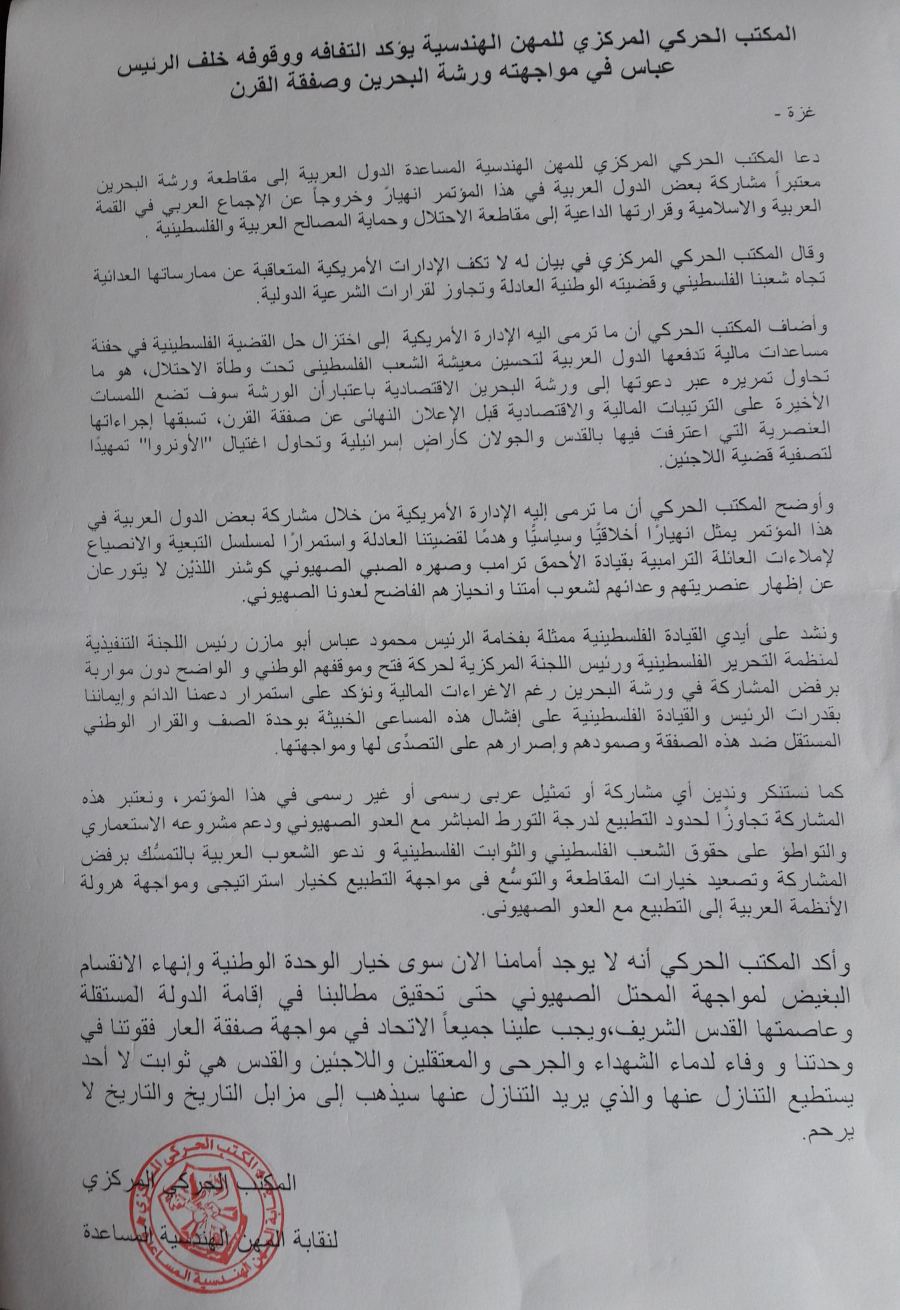 المكتب الحركي المركزي للمهن الهندسية يؤكد التفافه ووقوفه خلف الرئيس
عباس في مواجهته ورشة البحرين وصفقة القرن
غزة -
دعا المكتب الحركي المركزي للمهن الهندسية المساعدة الدول العربية إلى مقاطعة ورشة البحرين
معتبراً مشاركة بعض الدول العربية في هذا المؤتمر انهيارً وخروجاً عن الإجماع العربي في القمة
العربية والاسلامية وقرارتها الداعية إلى مقاطعة الاحتلال وحماية المصالح العربية والفلسطينية .
وقال المكتب الحركي المركزي في بيان له لا تكف الإدارات الأمريكية المتعاقبة عن ممارساتها العدائية
تجاه شعبنا الفلسطيني وقضيته الوطنية العادلة وتجاوز لقرارات الشرعية الدولية.
وأضاف المكتب الحركي أن ما ترمى اليه الإدارة الأمريكية إلى اختزال حل القضية الفلسطينية في حفنة
مساعدات مالية تدفعها الدول العربية لتحسين معيشة الشعب الفلسطينى تحت وطأة الاحتلال، هو ما
تحاول تمريره عبر دعوتها إلى ورشة البحرين الاقتصادية باعتبارأن الورشة سوف تضع اللمسات
الأخيرة على الترتيبات المالية والاقتصادية قبل الإعلان النهائى عن صفقة القرن، تسبقها إجراءاتها
العنصرية التي اعترفت فيها بالقدس والجولان كأراضٍ إسرائيلية وتحاول اغتيال "الأونروا" تمهيدًا
لتصفية قضية اللاجئين.
وأوضح المكتب الحركي أن ما ترمى إليه الإدارة الأمريكية من خلال مشاركة بعض الدول العربية في
هذا المؤتمر يمثل انهيارًا أخلاقيًّا وسياسيًّا وهدمًا لقضيتنا العادلة واستمرارًا لمسلسل التبعية والانصياع
لإملاءات العائلة الترامبية بقيادة الأحمق ترامب وصهره الصبي الصهيوني كوشنر اللذيْن لا يتورعان
عن إظهار عنصريتهم وعدائهم لشعوب أمتنا وانحيازهم الفاضح لعدونا الصهيوني.
ونشد على أيدي القيادة الفلسطينية ممثلة بفخامة الرئيس محمود عباس أبو مازن رئيس اللجنة التنفيذية
لمنظمة التحرير الفلسطينية ورئيس اللجنة المركزية لحركة فتح وموقفهم الوطني و الواضح دون مواربة
برفض المشاركة في ورشة البحرين رغم الاغراءات المالية ونؤكد على استمرار دعمنا الدائم وإيماننا
بقدرات الرئيس والقيادة الفلسطينية على إفشال هذه المساعى الخبيثة بوحدة الصف والقرار الوطني
المستقل ضد هذه الصفقة وصمودهم وإصرارهم على التصدًى لها ومواجهتها.
كما نستنكر وندين أي مشاركة أو تمثيل عربى رسمى أو غير رسمى في هذا المؤتمر، ونعتبر هذه
المشاركة تجاوزًا لحدود التطبيع لدرجة التورط المباشر مع العدو الصهيوني ودعم مشروعه الاستعماري
والتواطؤ على حقوق الشعب الفلسطيني والثوابت الفلسطينية و ندعو الشعوب العربية بالتمسُّك برفض
المشاركة وتصعيد خيارات المقاطعة والتوسُّع فى مواجهة التطبيع كخيار استراتيجى ومواجهة هرولة
الأنظمة العربية إلى التطبيع مع العدو الصهيونى.
وأكد المكتب الحركي أنه لا يوجد أمامنا الان سوى خيار الوحدة الوطنية وإنهاء الانقسام
البغيض لمواجهة المحتل الصهيوني حتى تحقيق مطالبنا في إقامة الدولة المستقلة
وعاصمتها القدس الشريف،ويجب علينا جميعاً الاتحاد في مواجهة صفقة العار فقوتنا في
وحدتنا و وفاء لدماء الشهداء والجرحى والمعتقلين واللاجئين والقدس هي ثوابت لا أحد
يستطيع التنازل عنها والذي يريد التنازل عنها سيذهب إلى مزابل التاريخ والتاريخ لا
يرحم.
المكتب الحركي المركزي
لنقابة المهن الهندسية المساعدة